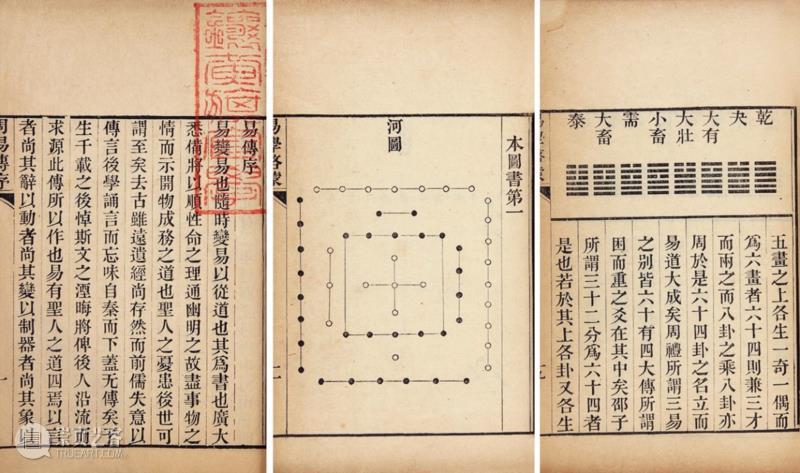 易傳序
易變易也隨時變易以從道也其爲書也廣大
悉備將以順性命之理通幽明之故盡事物之
情而示開物成務之道也聖人之憂患後世可
謂至矣去古雖遠遺經尚存然而前儒失意以
傳言後學誦言而忘味自秦而下蓋无傳矣予
生千載之後悼斯文之湮晦將俾後人沿流而
求源此傳所以作也易有聖人之道四焉以言
者尚其辭以動者尚其變以制器者尚其象
周易傳序
一
本圖書第一
河圖
易學啓蒙
乾
夬
大有
大壯
小畜
需
大畜
泰
五畫之上各生一奇一偶而
爲六畫者六十四則兼三才
而兩之而八卦之乘八卦亦
周於是六十四卦之名立而
易道大成矣周禮所謂三易
之別皆六十有四大傳所謂
因而重之爻在其中矣邵子
所謂三十二分爲六十四者
是也若於其上各卦又各生
TRUEART.COM